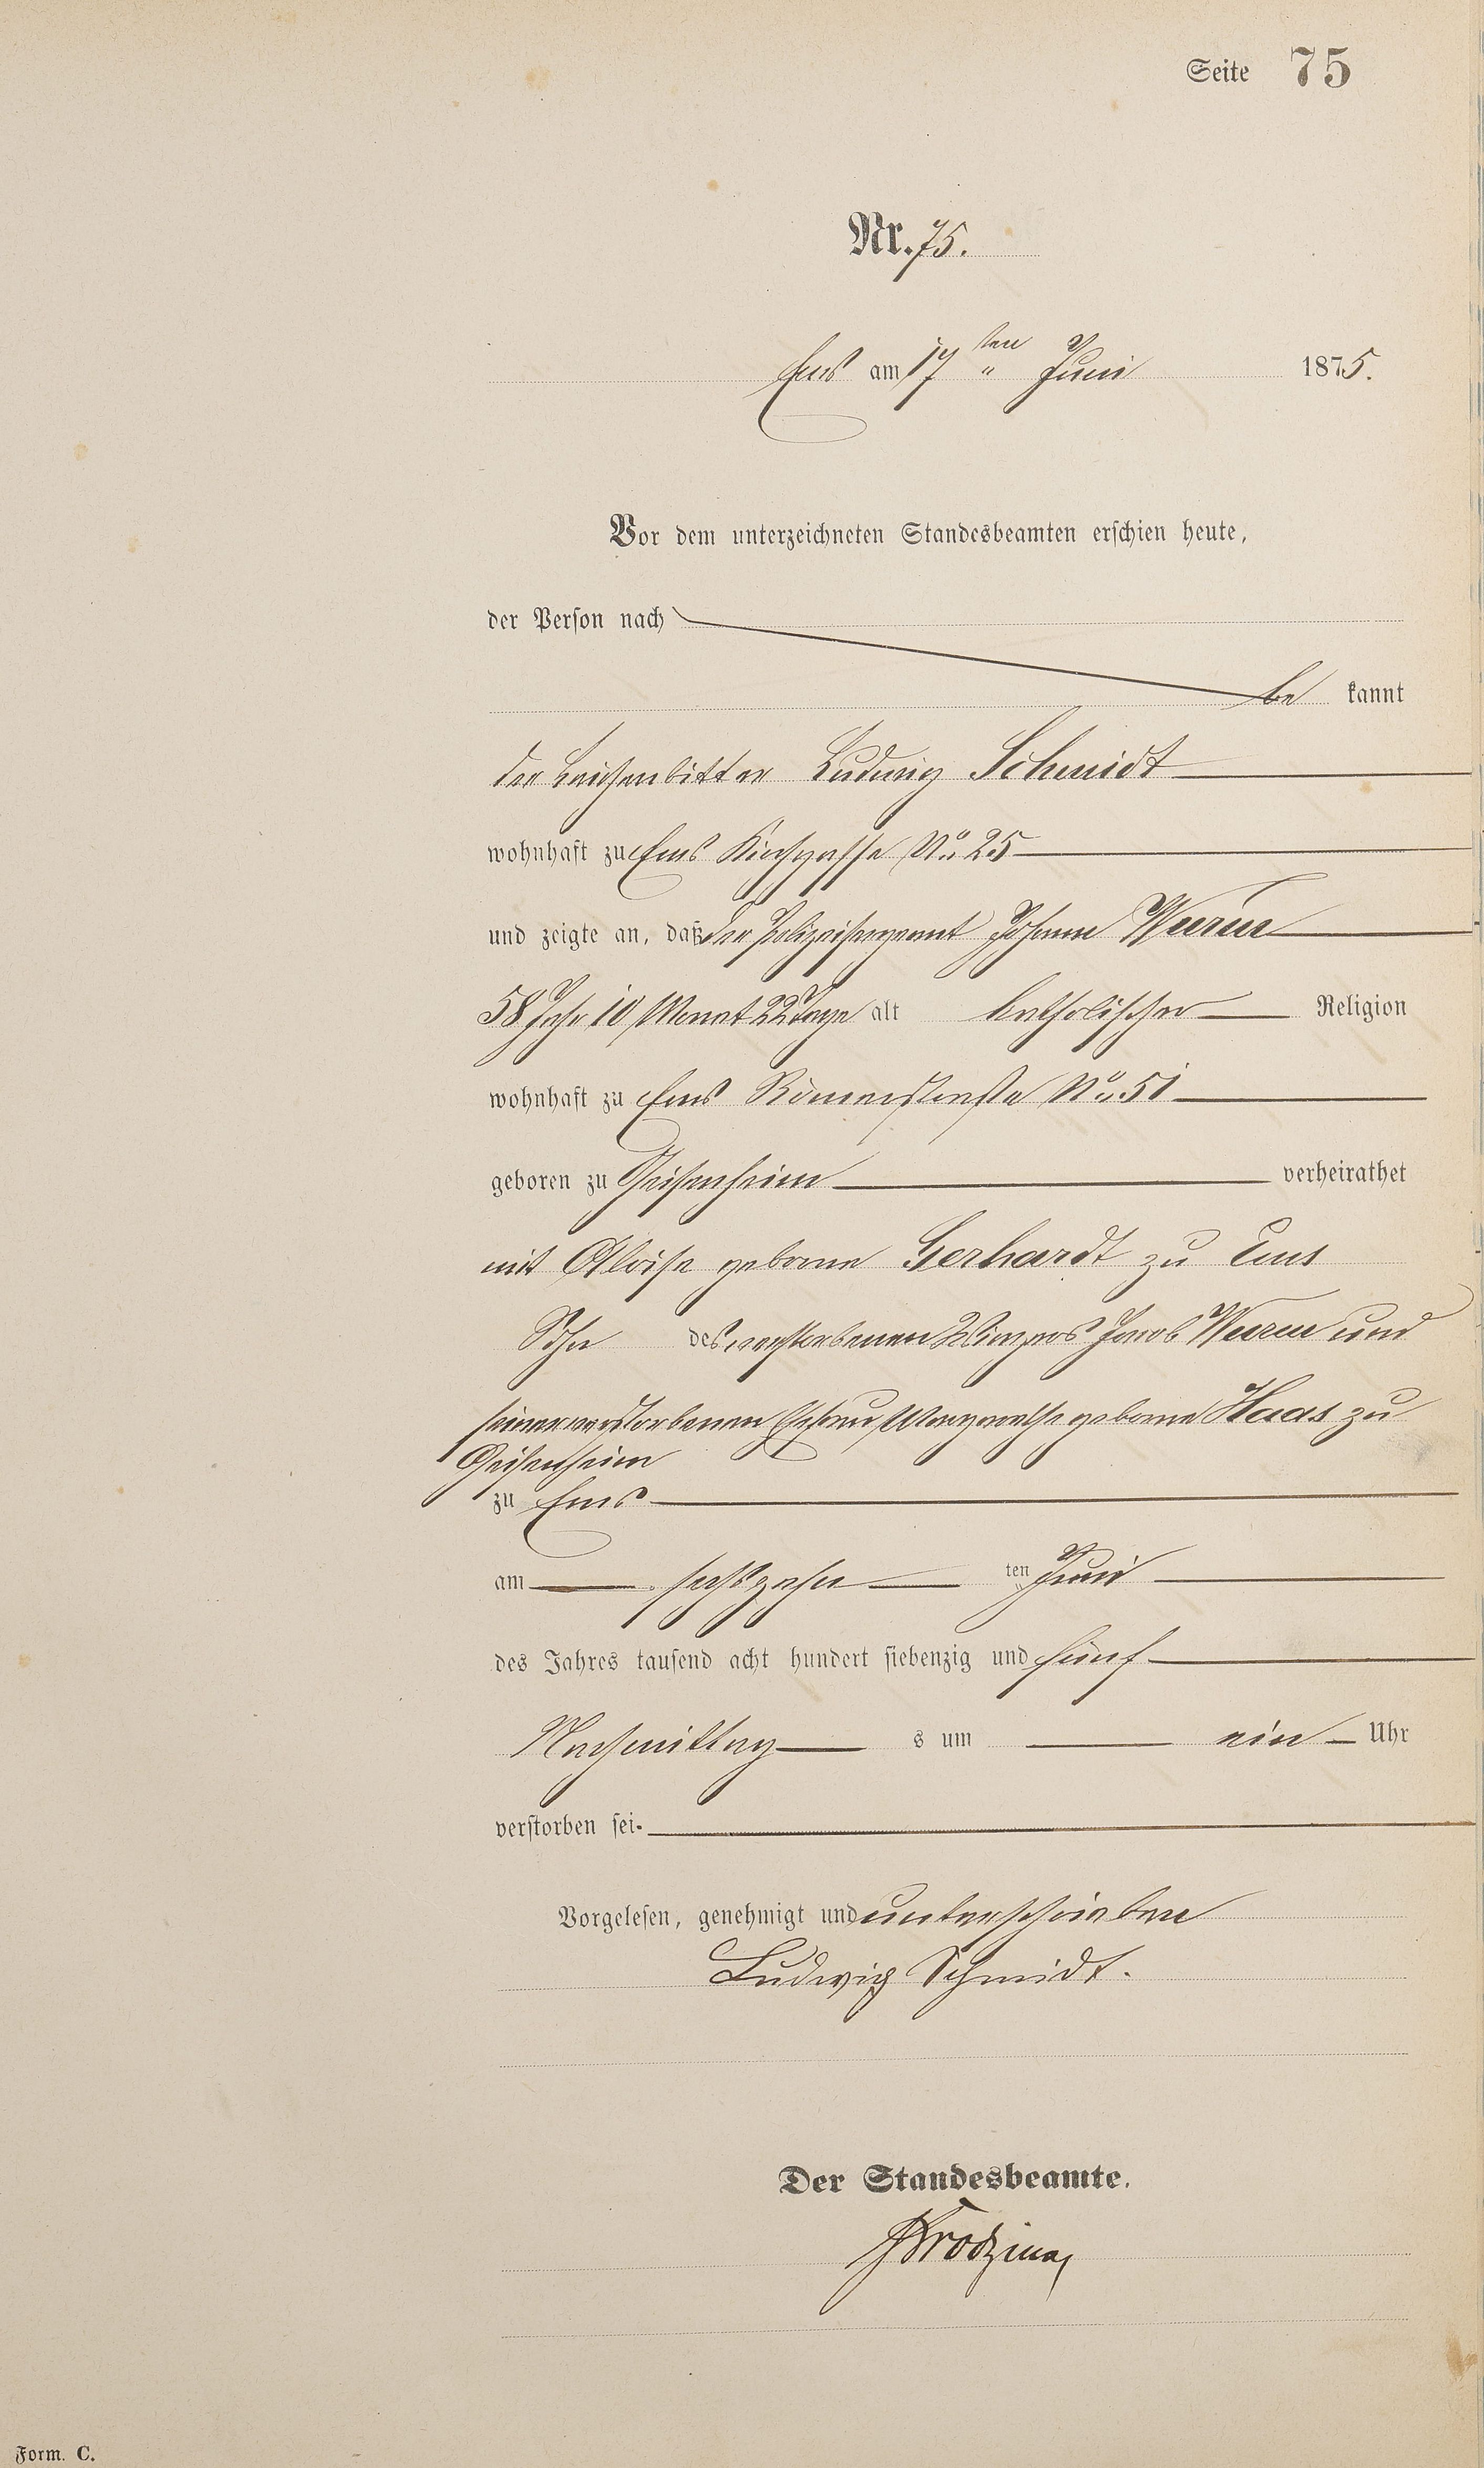 Seite 75
Nr. 75.
Ems am 17ten „ Juni 1875.
Vor dem unterzeichneten Standesbeamten erschien heute,
der Person nach
be kannt
der Leichenbitter Ludwig Schmidt
wohnhaft zu Ems Kirchgasse No. 25
und zeigte an, daß der Polizeisergeant Johann Wurm
58 Jahr 10 Monat 22 Tage alt katholischer Religion
wohnhaft zu Ems Römerstraße No. 51
geboren zu Geisenheim verheirathet
mit geborne Gerhardt zu Ems
Sohn des verstorbenen Winzers Jacob Wurm und
seiner verstorbenen Ehefrau Margarethe geborne Haas zu
Geisenheim
zu Ems
am sechszehn ten Juni
des Jahres tausend acht hundert siebenzig und fünf
Nachmittag s um ein Uhr
verstorben sei.
Vorgelesen, genehmigt und unterschrieben
Ludwig Schmidt.
Der Standesbeamte.
Form. C.